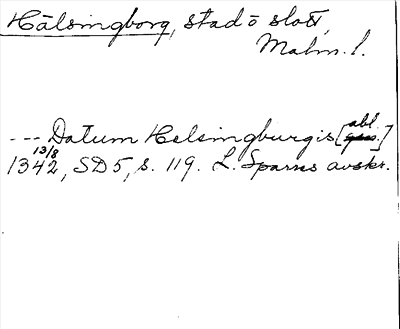 Hälsingborg, stad o slott,
Malm. l.
--- Datum Helsingburgis [abl.]
1342 13/8, SD 5, s. 119. L. Sparres avskr.